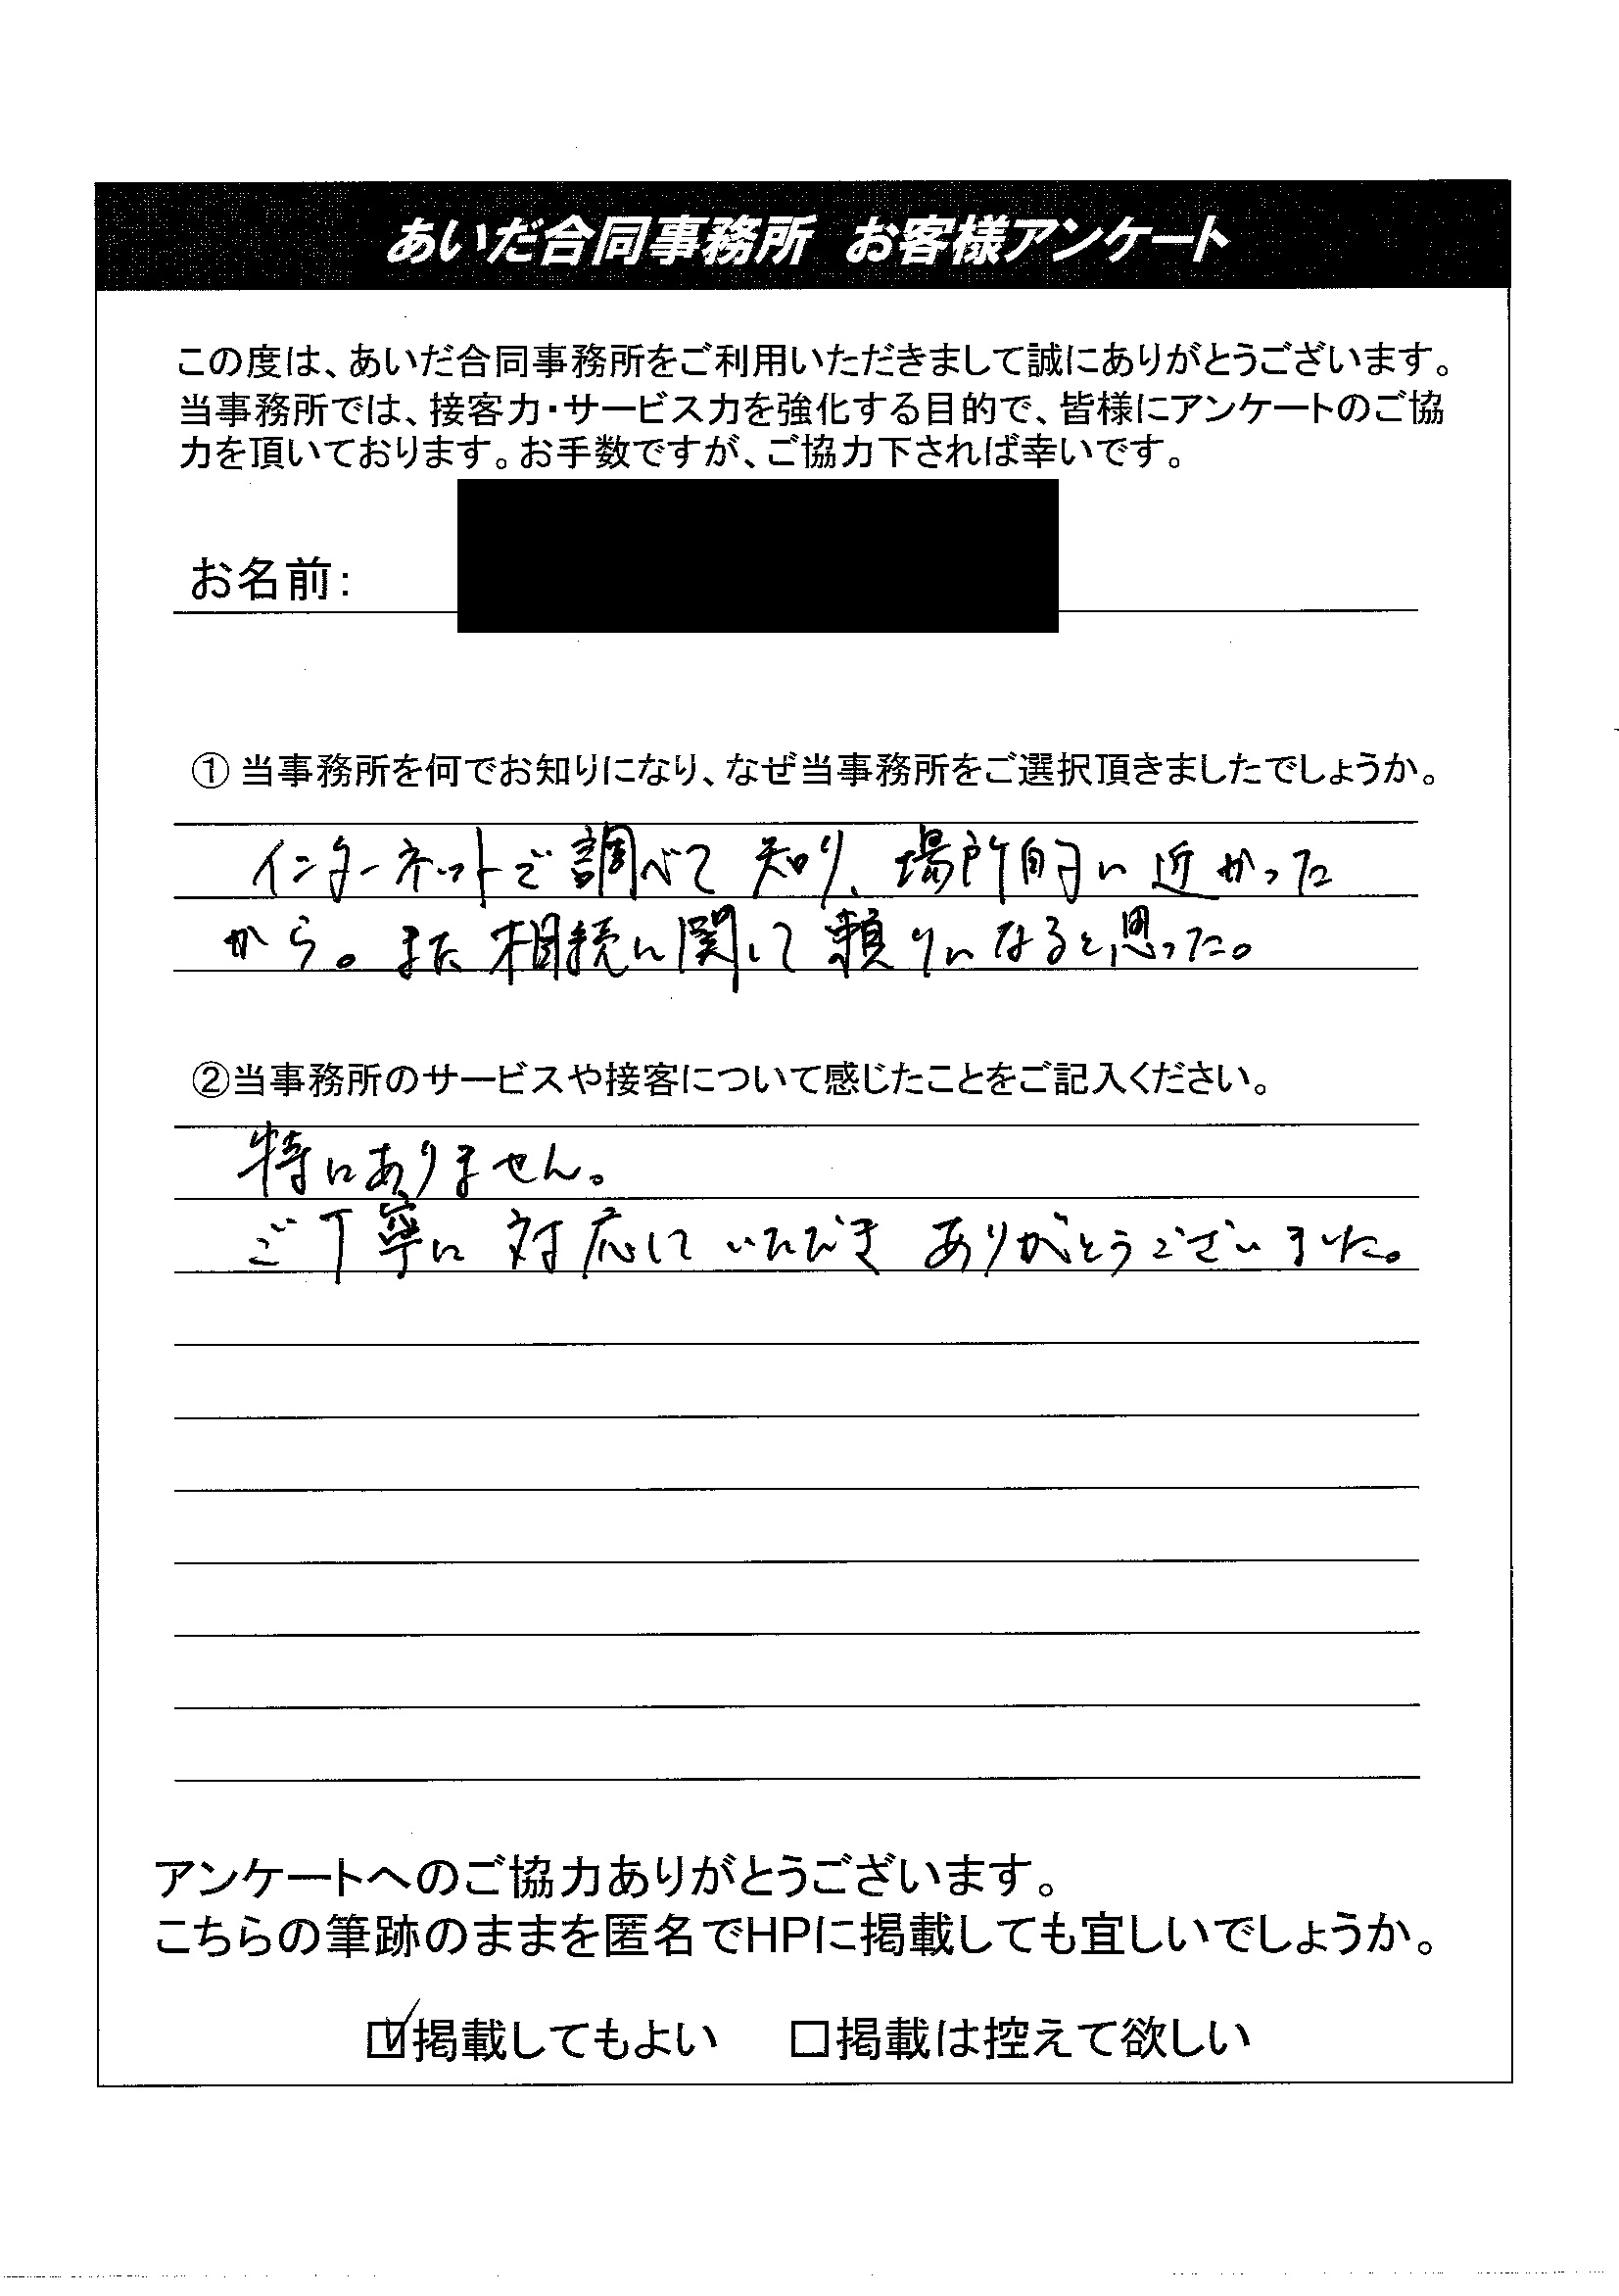 あいだ合同事務所　お客様アンケート
この度は、あいだ合同事務所をご利用いただきまして誠にありがとうございます。
当事務所では、接客力・サービス力を強化する目的で、皆様にアンケートのご協
力を頂いております。お手数ですが、ご協力下されば幸いです。
お名前：
① 当事務所を何でお知りになり、なぜ当事務所をご選択頂きましたでしょうか。
インターネットで調べて知り、場所的に近かった
から。また相続に関して頼りになると思った。
②当事務所のサービスや接客について感じたことをご記入ください。
特にありません。
ご丁寧に対応していただきありがとうございました。
アンケートへのご協力ありがとうございます。
こちらの筆跡のままを匿名でHPに掲載しても宜しいでしょうか。
☑掲載してもよい　□掲載は控えて欲しい